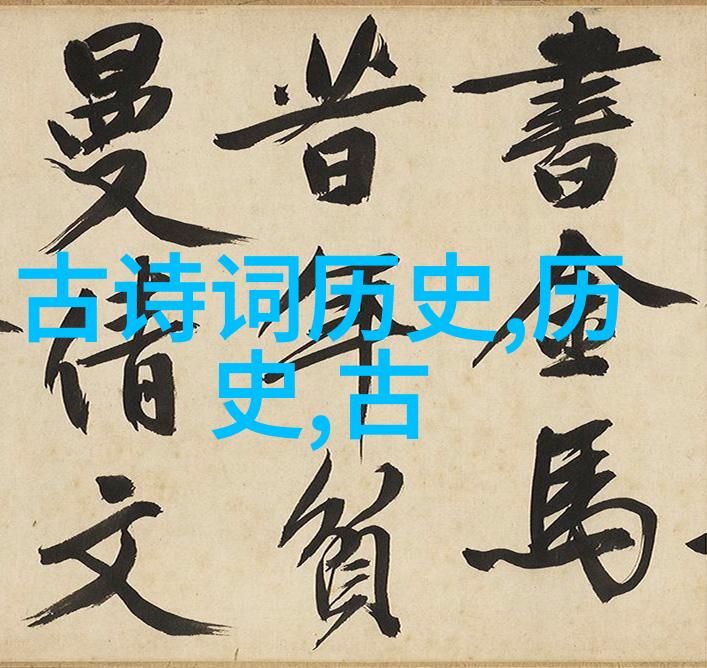 書金馬
昔年負
曼倩文
古诗词历史,历
史,古